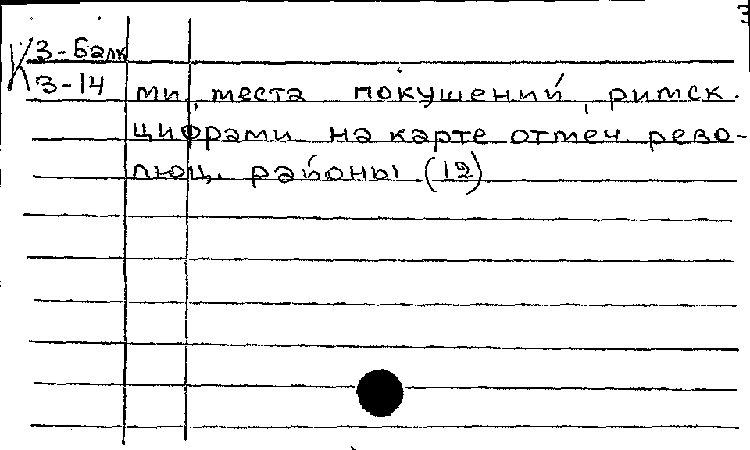 К З-Балк
З-14
ми, места покушений, римск.
цифрами на карте отмеч. рево-
люц. районы (12)